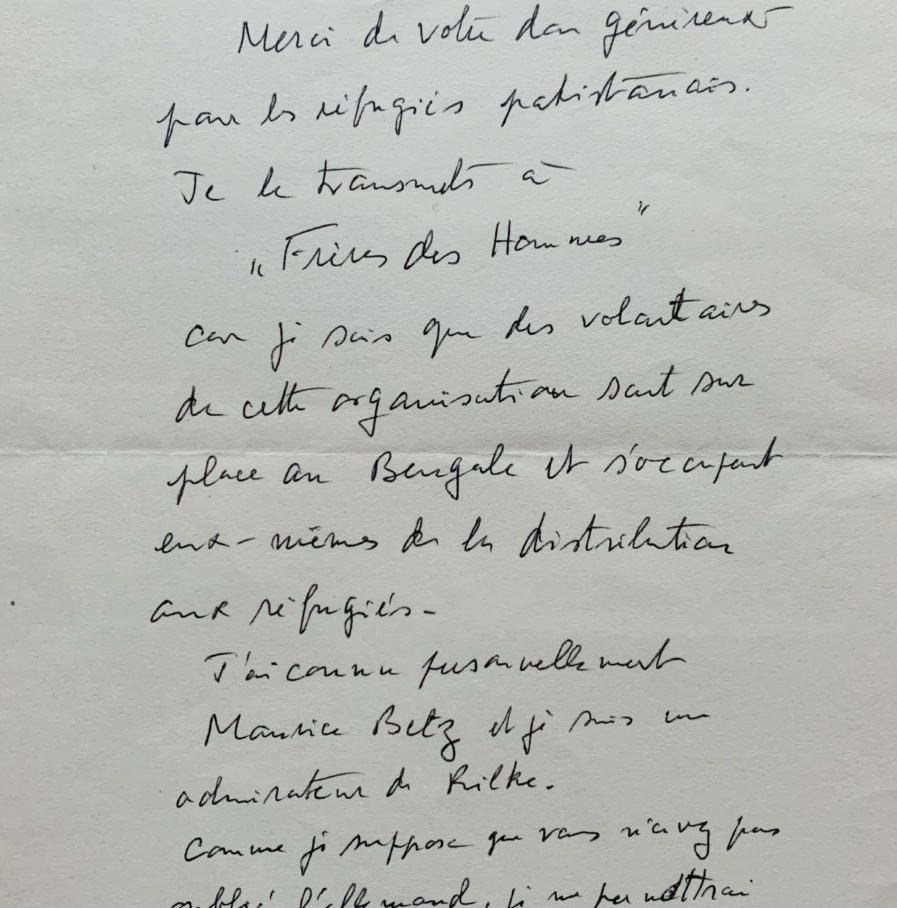 Merci de votre don généreux
pour les réfugiés pakistanais.
Je le transmets à
"Frères des Hommes"
car je sais que des volontaires
de cette organisation sont sur
place au Bengale et s'occupent
eux-mêmes de la distribution
aux réfugiés -
J'ai connu personnellement
Maurice Betz et je suis un
admirateur de Rilke.
Comme je suppose que vous n'avez pas
oublié l'allemand, je me permettrai